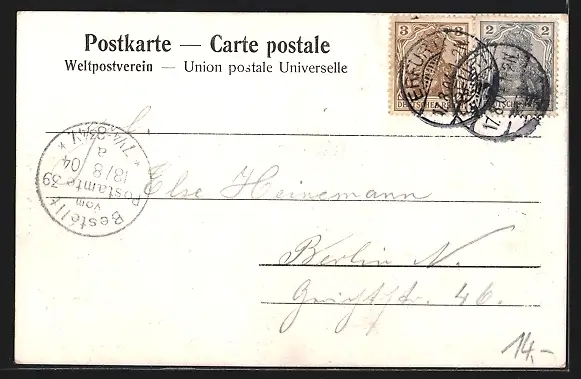 Postkarte — Carte postale
Weltpostverein — Union postale Universelle
3 3
DEUTSCHES REICH
2 2
DEUTSCHES REICH
ERFURT
17.8.04
17.8.04
Bestellt
vom
Postamte 39
18/8 04
a
7¼-8¾V.
Else Heinemann
Berlin N.
Gerichtstr. 46.
14,-